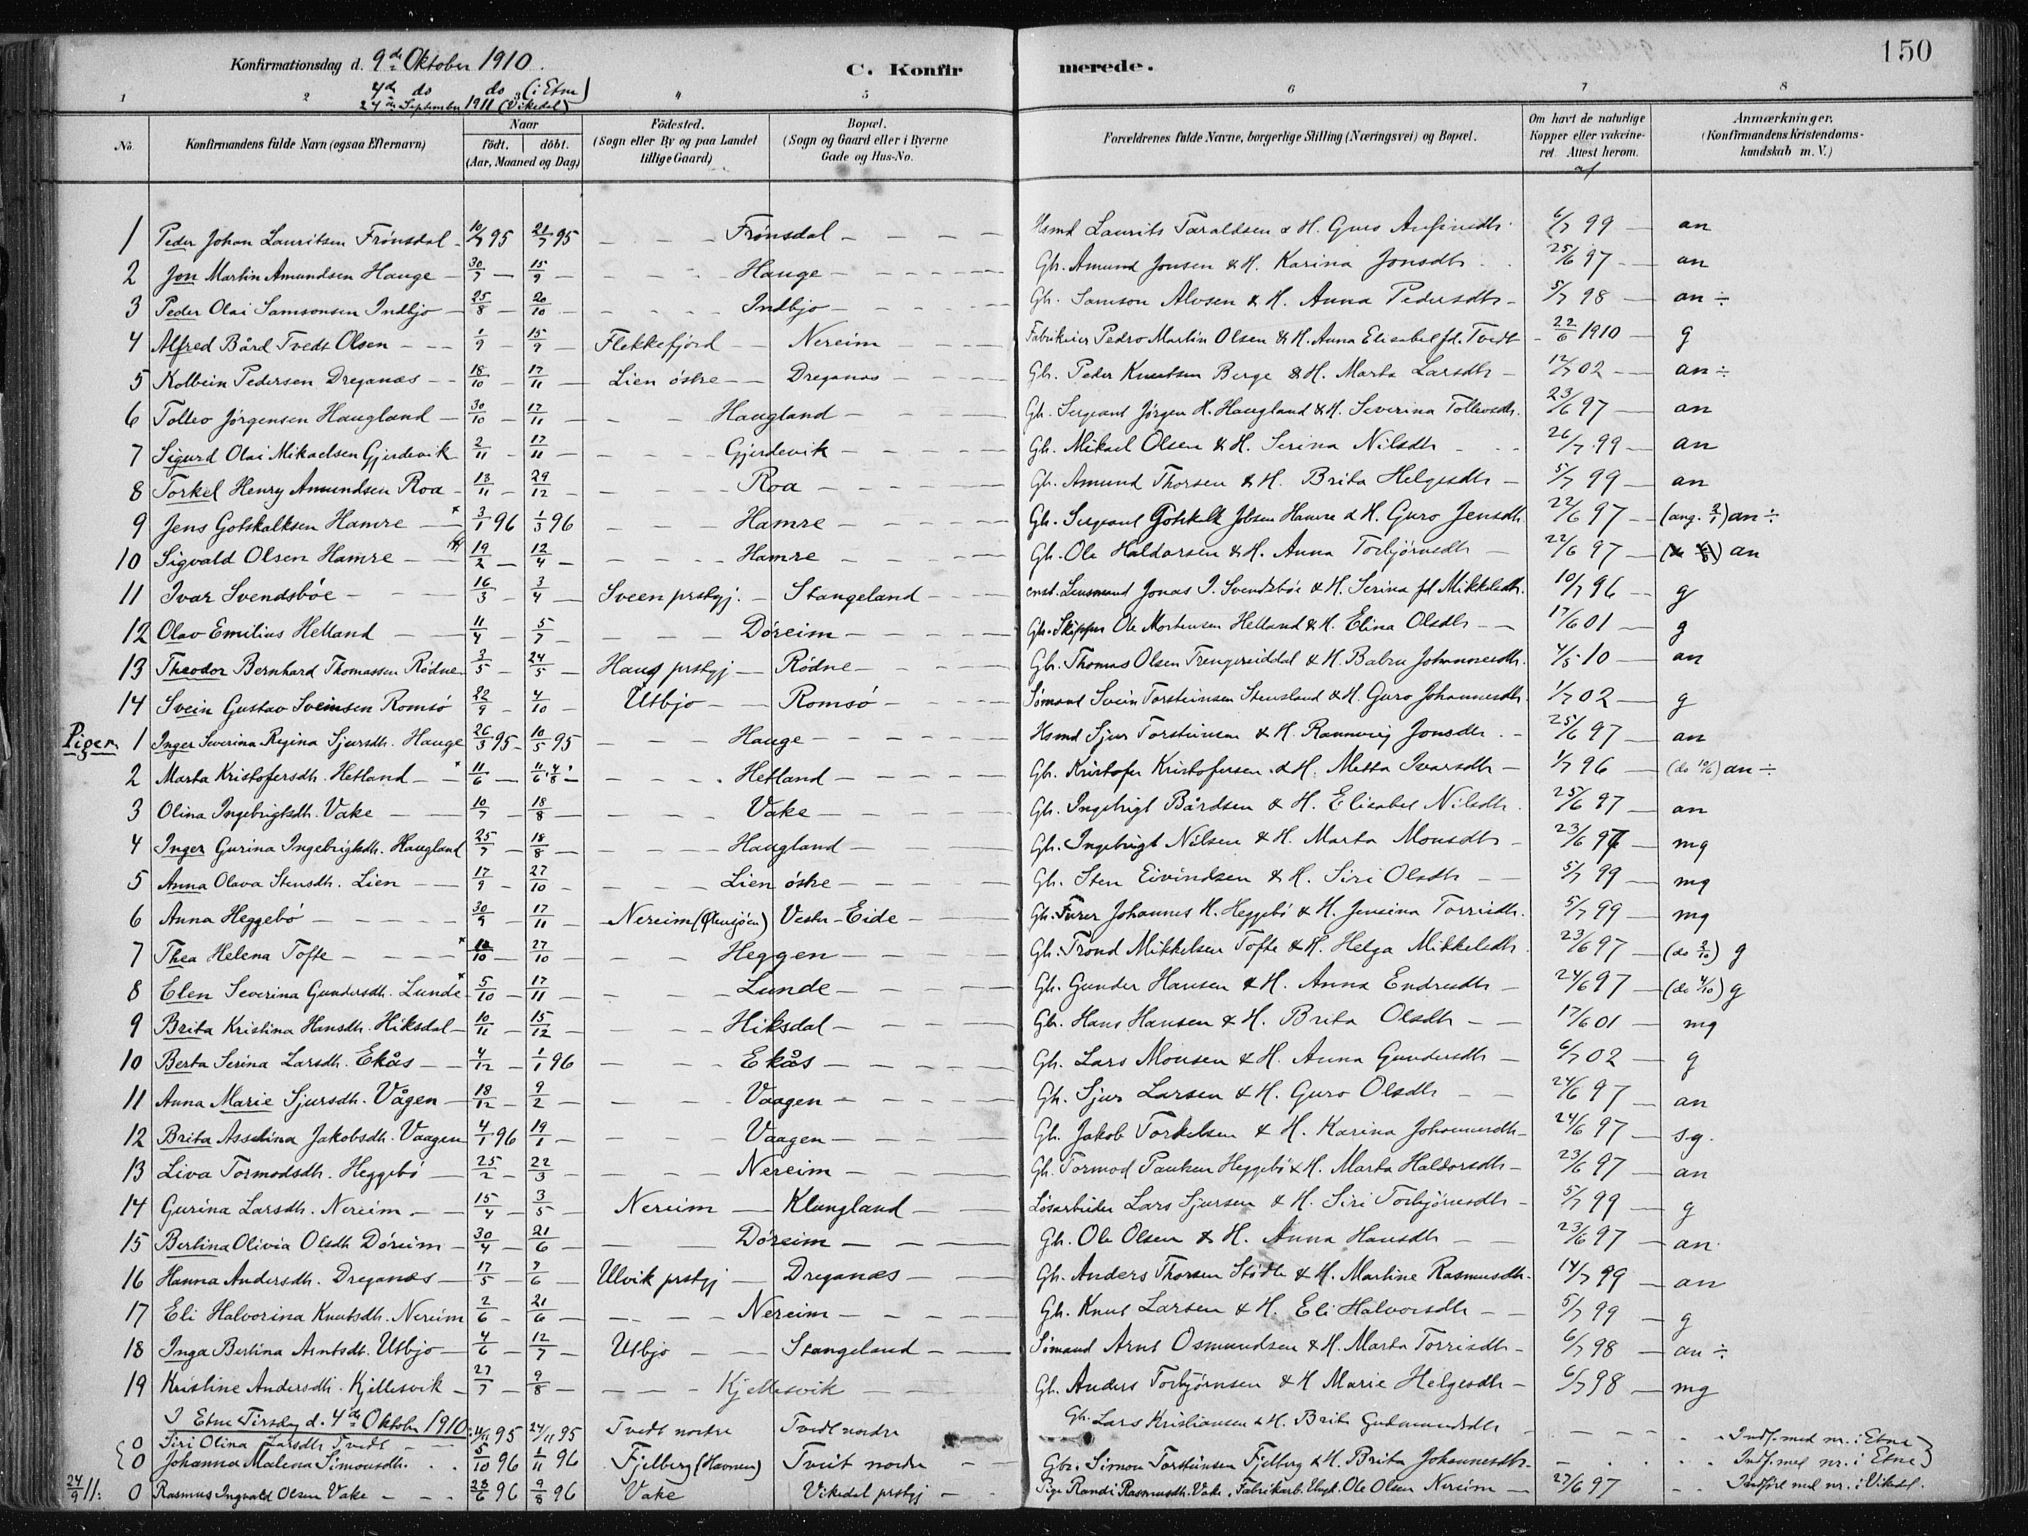 150
Konfirmationsdag d. 9de Oktober 1910.
C. Konfirmerede.
4de do do (i Etne)
24de September 1911 (Vikedal)
1 2 3 4 5 6 7 8
No. Konfirmandens fulde Navn (ogsaa Efternavn) Naar födt. döbt. (Aar, Maaned og Dag) Födested. (Sogn eller By og paa Landet tillige Gaard) Bopæl. (Sogn og Gaard eller i Byerne Gade og Hus-No. Forældrenes fulde Navne, borgerlige Stilling (Næringsvei) og Bopæl. Om havt de naturlige Kopper eller vakcineret. Attest herom. af Anmærkninger. (Konfirmandens Kristendomskundskab m. V.)
1 Peder Johan Lauritsen Frönsdal 10/7 95 21/7 95 — Frönsdal — Hsmd Laurits Taraldsen & H. Guro Anfinsdtr. 6/7 99 — an
2 Jon Martin Amundsen Hauge 30/7 — 15/9 — Hauge — Gbr. Amund Jonsen & H. Karina Jonsdtr 25/6 97 — an
3 Peder Olai Samsonsen Indbjo 25/8 — 20/10 — Indbjo — Gbr. Samson Alvsen & H. Anna Pedersdtr — 5/7 98 — an ÷
4 Alfred Bård Tvedt Olsen 1/9 — 15/9 — Flekkefjord — Nereim — Pedro Martin Olsen & H. Anna Elisabet fd. Tvedt 22/6 1910 — g
5 Kolbein Pedersen Dreganæs 18/10 — 17/11 — Lien östre — Dreganæs — Gbr. Peder Knutsen Berge & H. Marta Larsdtr — 12/7 02 — an ÷
6 Tollev Jörgensen Haugland 30/10 — 17/11 — Haugland — Gbr. Sergeant Jörgen H. Haugland & H. Severina Tollevsdtr. 23/6 97 — an
7 Sigurd Olai Mikaelsen Gjerdevik 2/11 — 17/11 — Gjerdevik — Gbr. Mikael Olsen & H. Serina Nilsdtr 26/7 99 — an
8 Torkel Henry Amundsen Roa 13/11 — 29/12 — Roa — Gbr. Amund Thorsen & H. Brita Helgesdtr — 5/7 99 — an
9 Jens Gotskalksen Hamre 3/1 96 1/3 96 — Hamre — Gbr. Sergeant Gotskalk Hamre & H. Guro Jensdtr. 22/6 97 — (ang. 2/1) an ÷
10 Sigvald Olsen Hamre 19/2 — 12/4 — Hamre — Gbr. Ole Haldorsen & H. Anna Torbjörnsdtr — 22/6 97 — an
11 Ivar Svendsböe 16/3 — 3/4 — Sveen prstgj. — Stangeland — Lensmand Jonas I. Svendsböe & H. Serina fd Mikkelsdtr. 10/7 96 — g
12 Olav Emilius Helland 11/4 — 5/7 — Döreim — Gbr. Skipper Ole Mortensen Helland & H. Elina Olsdtr — 17/6 01 — g
13 Theodor Bernhard Thomassen Rödne 3/5 — 24/5 — Haus prstgj — Rödne — Gbr. Thomas Olsen Trengereiddal & H. Johannesdtr. 4/5 10 — an
14 Svein Gustav Sveinsen Romsö 22/9 — 4/10 — Utbjo — Romsö — Sömand Svein Torsteinsen Stensland & H. Guro Johannesdtr. 1/7 02 — g
Piger. 1 Inger Severina Regina Sjursdtr. Hauge 26/3 95 10/5 95 — Hauge — Hsmd Sjur Torsteinsen & H. Rannveig Jonsdtr. — 25/6 97 — an
2 Marta Kristofersdtr. Hetland 11/6 — 11/6. 4/8 — Hetland — Gbr. Kristofer Kristofersen & H. Metta Ivarsdtr — 1/7 96 — (do 10/6) an ÷
3 Olina Ingebrigtsdtr. Vake 10/7 — 18/8 — Vake — Gbr. Ingebrigt Bårdsen & H. Elisabet Nilsdtr. 25/6 97 — an
4 Inger Gurina Ingebrigtsdtr. Haugland 25/7 — 18/8 — Haugland — Gbr. Ingebrigt Nilsen & H. Marta Monsdtr — 23/6 97 — mg
5 Anna Olava Stensdtr. Lien 17/9 — 27/10 — Lien östre — Gbr. Sten Eivindsen & H. Siri Olsdtr — 5/7 99 — mg
6 Anna Heggebö 30/9 — 17/11 — Nereim (Ölensjöen) Vestr-Eide — Gbr. Furer Johannes H. Heggebö & H. Jensina Torrisdtr. 5/7 99 — mg
7 Thea Helena Tofte 10/10 27/10 — Heggen — Gbr. Trond Mikkelsen Tofte & H. Helga Mikkelsdtr. 23/6 97 — (do 2/10) g
8 Elen Severina Gundersdtr. Lunde 5/10 — 17/11 — Lunde — Gbr. Gunder Hansen & H. Anna Endresdtr — 24/6 97 — (do 4/10) g
9 Brita Kristina Hansdtr. Hiksdal 10/11 — 15/12 — Hiksdal — Gbr. Hans Hansen & H. Brita Olsdtr — 17/6 01 — mg
10 Berta Serina Larsdtr. Ekås 4/12 — 1/1 96 — Ekås — Gbr. Lars Monsen & H. Anna Gundersdtr — 6/7 02 — g
11 Anna Marie Sjursdtr. Vågen 18/12 — 9/2 — Vaagen — Gbr. Sjur Larsen & H. Guro Olsdtr — 24/6 97 — an
12 Brita Asselina Jakobsdtr. Vaagen 4/1 96 19/1 — Vaagen — Gbr. Jakob Torkelsen & H. Karina Johannesdtr — 24/6 97 — s.g.
13 Liva Tormodsdtr. Heggebö 25/2 — 22/3 — Nereim — Gbr. Tormod Paulsen Heggebö & H. Marta Haldorsdtr — 23/6 97 — an
14 Gurina Larsdtr. Nereim 15/4 — 3/5 — Nereim — Klungland — Lösarbeider Lars Sjursen & H. Siri Torbjörnsdtr — 5/7 99 — g
15 Bertina Olivia Olsdtr Döreim 30/4 — 21/6 — Döreim — Gbr. Ole Olsen & H. Anna Hansdtr — 23/6 97 — an
16 Hanna Andersdtr. Dreganæs 17/5 — 7/6 — Ulvik prstgj — Dreganæs — Gbr. Anders Thorsen Stödle & H. Martine Rasmusdtr. 14/7 99 — an
17 Eli Halvorina Knutsdtr. Nereim 2/6 — 21/6 — Nereim — Gbr. Knut Larsen & H. Eli Halvorsdtr — 5/7 99 — g
18 Inga Bertina Arntsdtr. Utbjo 4/6 — 12/7 — Utbjo — Stangeland — Sömand Arnt Osmundsen & H. Marta Torrisdtr — 6/7 98 — an ÷
19 Kristine Andersdtr. Kjellesvik 27/7 — 9/8 — Kjellesvik — Gbr. Anders Torbjörnsen & H Marie Helgesdtr — 6/7 98 — mg
I Etne Tirsdag d. 4de Oktober 1910:
0 Siri Olina Larsdtr Tvedt 4/11 95 24/11 95 Tvedt nordre Tvedt nordre Gbr. Lars Kristiansen & H. Brita Gudmundsdtr — Indf. med nr. i Etne
0 Johanna Malena Simonsdtr. 5/10 96 1/11 96 Fjelberg (Havnen) Tveit nordre Gbr. Simon Torsteinsen Fjelberg & H. Brita Johannesdtr — Indf. med nr. i Etne
24/9 11: 0 Rasmus Ingvald Olsen Vake 28/6 96 9/8 96 Vake Vikedal prstgj — Pige Randi Rasmusdtr. Vake, Fabrikarb. Ole Olsen Nereim — 27/6 97 Indfört med nr. i Vikedal.